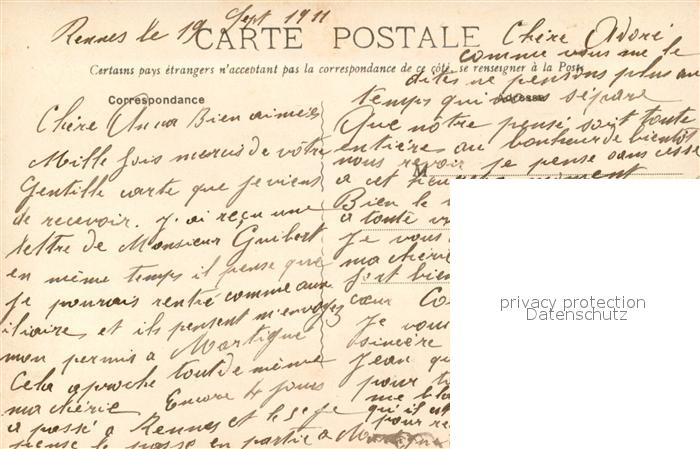 Rennes le 19 Sept 1911
CARTE POSTALE
Certains pays étrangers n'acceptant pas la correspondance de ce côté, se renseigner à la Poste
Correspondance
Chère Anna Bien aimées
Mille fois mercis de vôtre
Gentille carte que je viens
de recevoir. J'ai reçu une
lettre de Monsieur Guibert
en même temps il pense que
je pourrais rentré comme aux
iliaire, et ils pensent m'envoyez
mon permis a Martigné
Cela aproche tout de même
ma chérie Encore 4 jours
a passé a Rennes et le
pense le passé en partie a
Chère Adoré
comme vous me le
dites ne pensons plus au
temps qui nous sépare
Adresse
Que nôtre pensé soit toute
entière au bonheur de bientôt
nous revoir je pense sans cesse
M
a cet heureux moment
Bien le
a toute
Je vous
ma chérie
fort bien
cœur
Je vous
sincère
Jean qu
pour t
me
qu'il est
pour re
privacy protection
Datenschutz